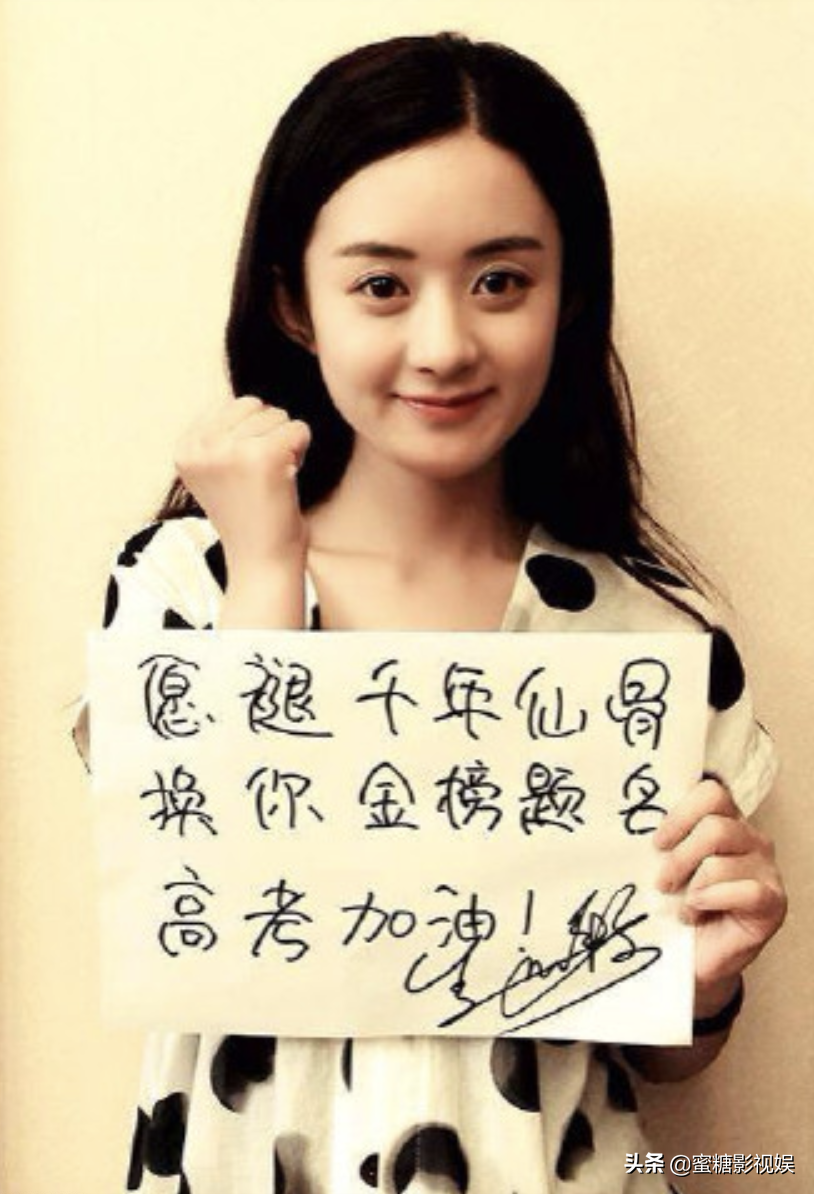 愿褪千年仙骨
换你金榜题名
高考加油！
头条 @蜜糖影视娱